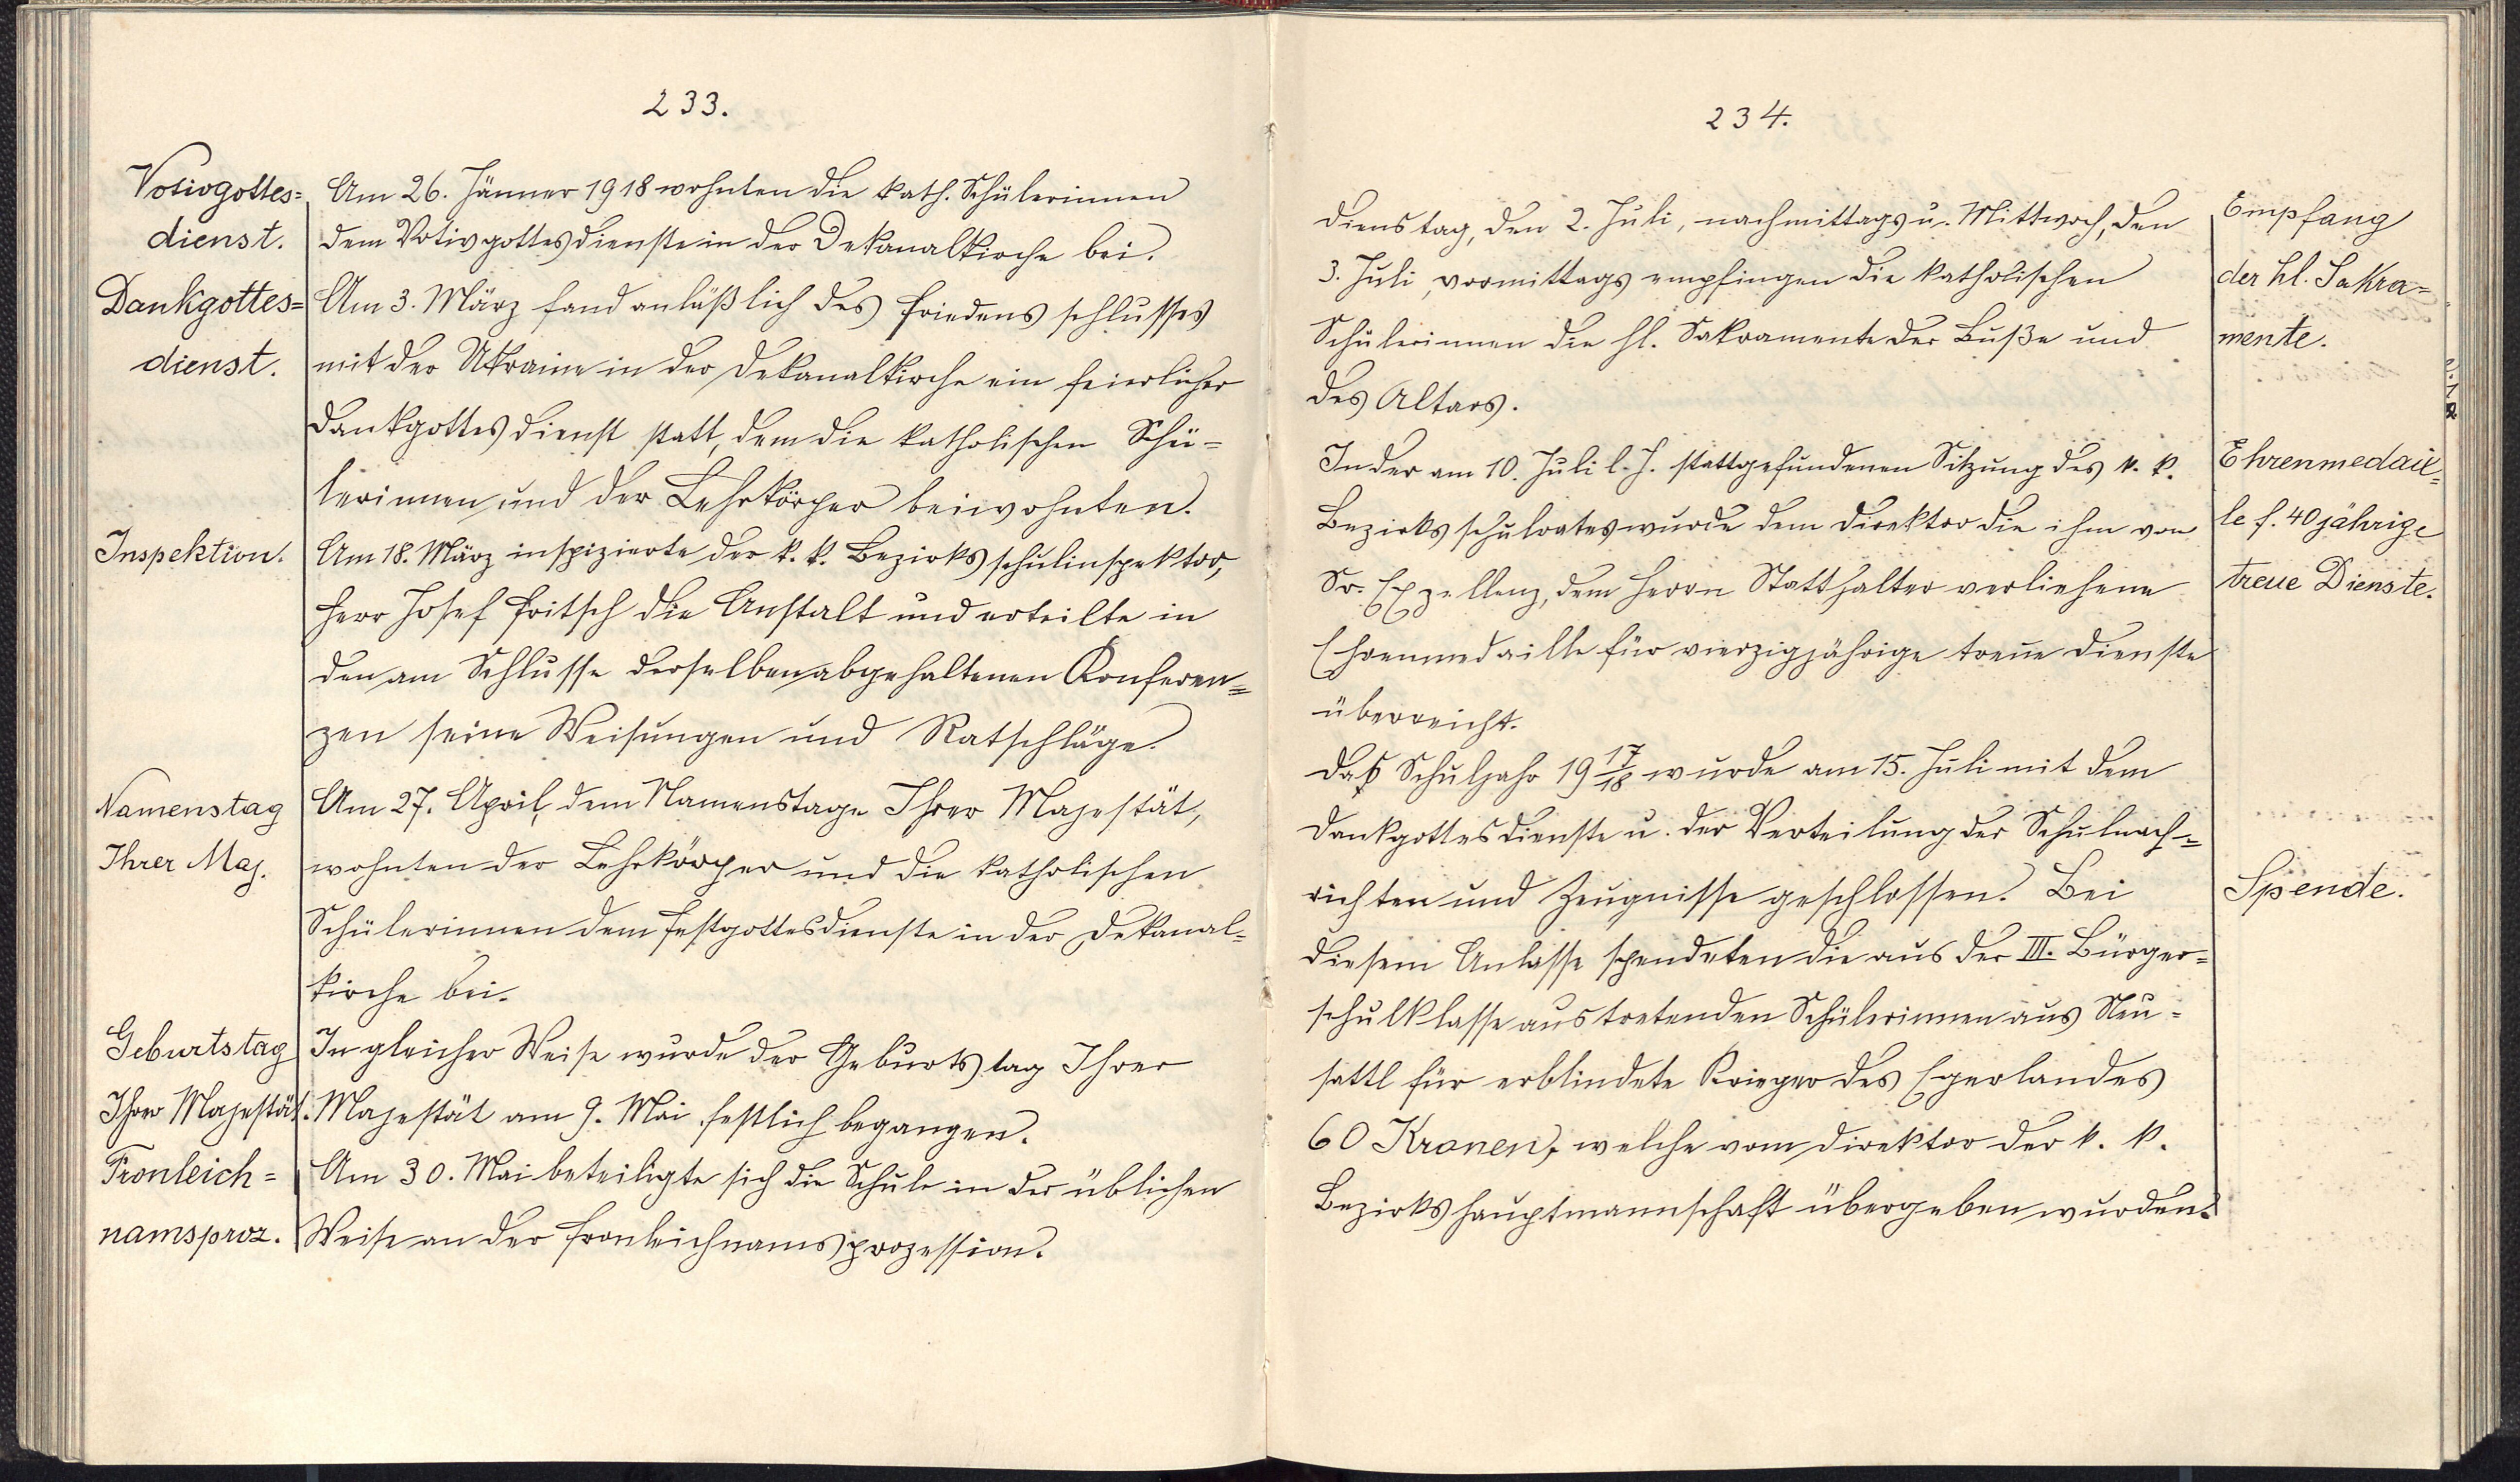 233.
Votivgottes=
dienst.
Dankgottes=
dienst.
Inspektion.
Namenstag
Ihrer Maj.
Geburtstag
Ihrer Majestät.
Fronleich=
namsproz.
Am 26. Jänner 1918 wohnten die kath. Schülerinnen
dem Votivgottesdienste in der Dekanalkirche bei.
Am 3. März fand anläßlich des Friedensschlusses
mit der Ukraine in der Dekanalkirche ein feierlicher
Dankgottesdienst statt, dem die katholischen Schü=
lerinnen und der Lehrkörper beiwohnten.
Am 18. März inspizierte der k. k. Bezirksschulinspektor,
Herr Josef Fritsch die Anstalt und erteilte in
den am Schlusse derselben abgehaltenen Konferen=
zen seine Weisungen und Ratschläge.
Am 27. April, dem Namenstage Ihrer Majestät,
wohnten der Lehrkörper und die katholischen
Schülerinnen dem Festgottesdienste in der Dekanal=
kirche bei.
In gleicher Weise wurde der Geburtstag Ihrer
Majestät am 9. Mai festlich begangen.
Am 30. Mai beteiligte sich die Schule in der üblichen
Weise an der Fronleichnamsprozession.
234.
Dienstag, den 2. Juli, nachmittags u. Mittwoch, den
3. Juli, vormittags empfingen die katholischen
Schülerinnen die hl. Sakramente der Buße und
des Altars.
In der am 10. Juli l. J. stattgefundenen Sitzung des k. k.
Bezirksschulrates wurde dem Direktor die ihm von
Sr. Exzellenz, dem Herrn Statthalter verliehene
Ehrenmedaille für vierzigjährige treue Dienste
überreicht.
Das Schuljahr 19 17/18 wurde am 15. Juli mit dem
Dankgottesdienste u. der Verteilung der Schulnach=
richten und Zeugnisse geschlossen. Bei
diesem Anlasse spendeten die aus der III. Bürger=
schulklasse austretenden Schülerinnen aus Neu=
sattl für erblindete Krieger des Egerlandes
60 Kronen, welche vom Direktor der k. k.
Bezirkshauptmannschaft übergeben wurden.
Empfang
der hl. Sakra=
mente.
Ehrenmedail=
le f. 40jährige
treue Dienste.
Spende.